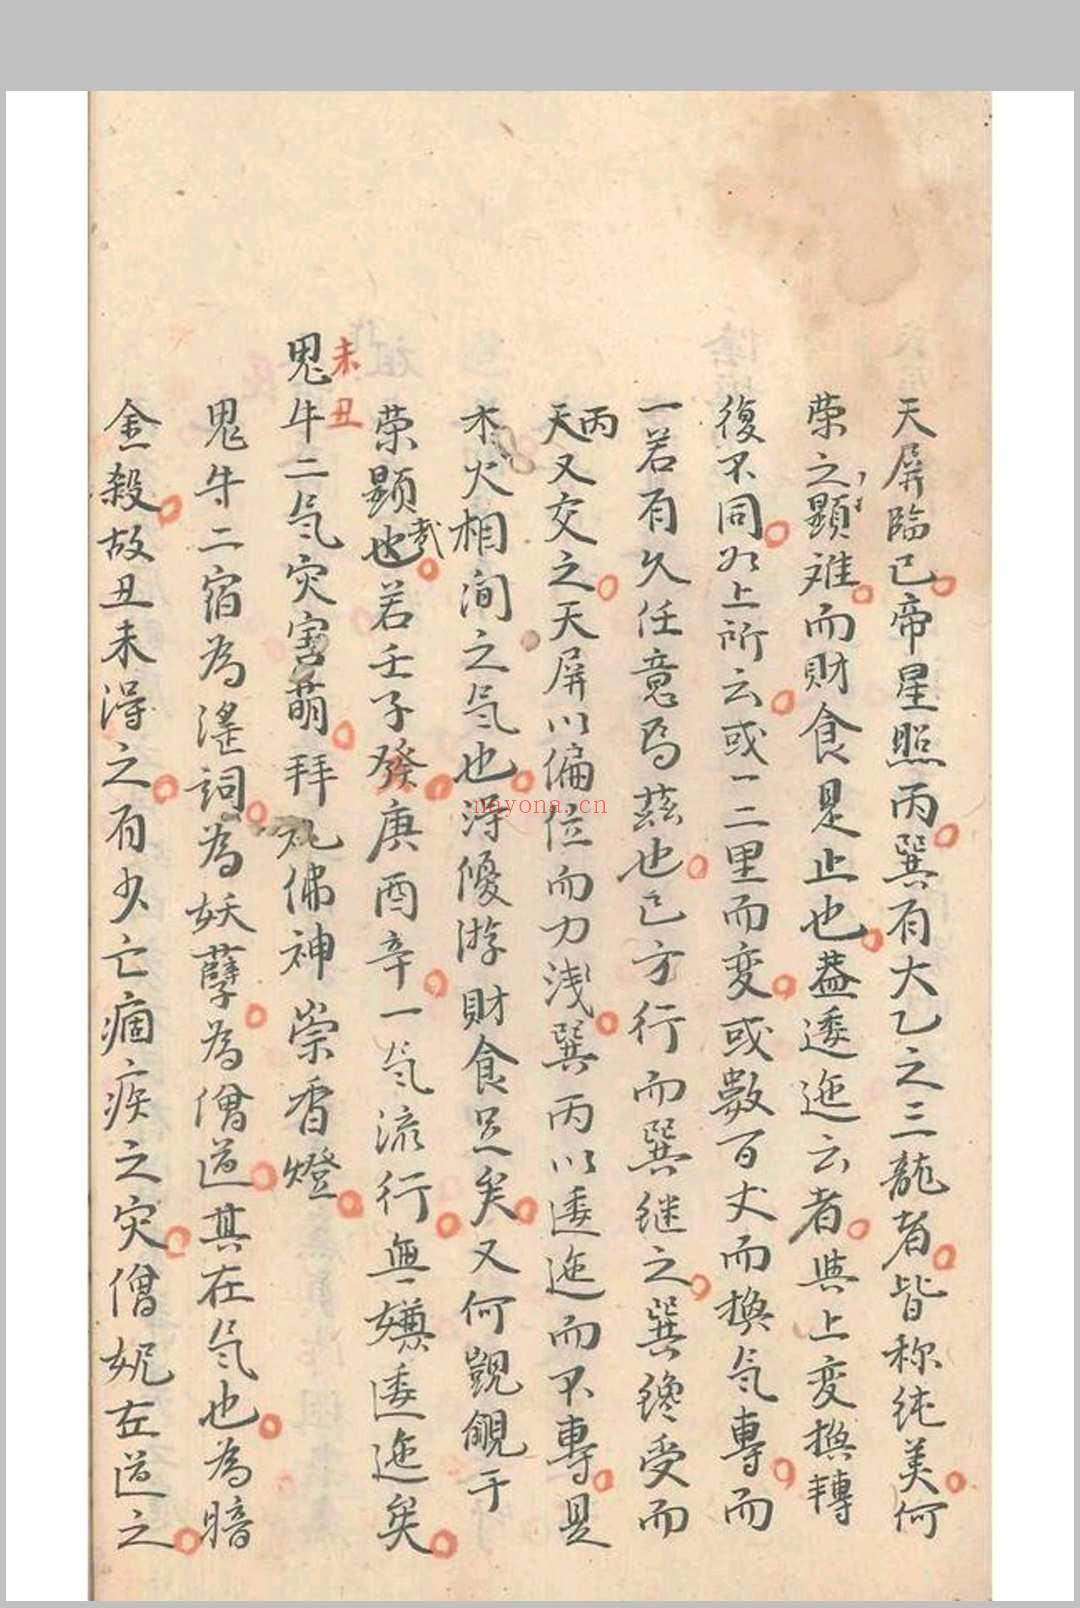 天屏臨巳帝星照丙巽有大乙之三龍者皆称纯美何
荣之顯难而財食是止也葢逶迤云者與上变换轉
復不同如上所云或一二里而变或數百丈而換气專而
一若有久任意焉兹也巳方行而巽继之巽纔受而
丙
天又交之天屏以偏位而力浅巽丙以逶迤而不專是
木火相间之气也得優游財食足矣又何覬覦于
荣顯也哉若壬子癸庚酉辛一气流行無嫌逶迤矣
未丑
鬼牛二气灾害萌拜礼佛神崇香燈
鬼牛二宿為淫词為妖孽為僧道其在气也為暗
金殺故丑未得之有少亡痼疾之灾僧妮左道之
nayona.cn